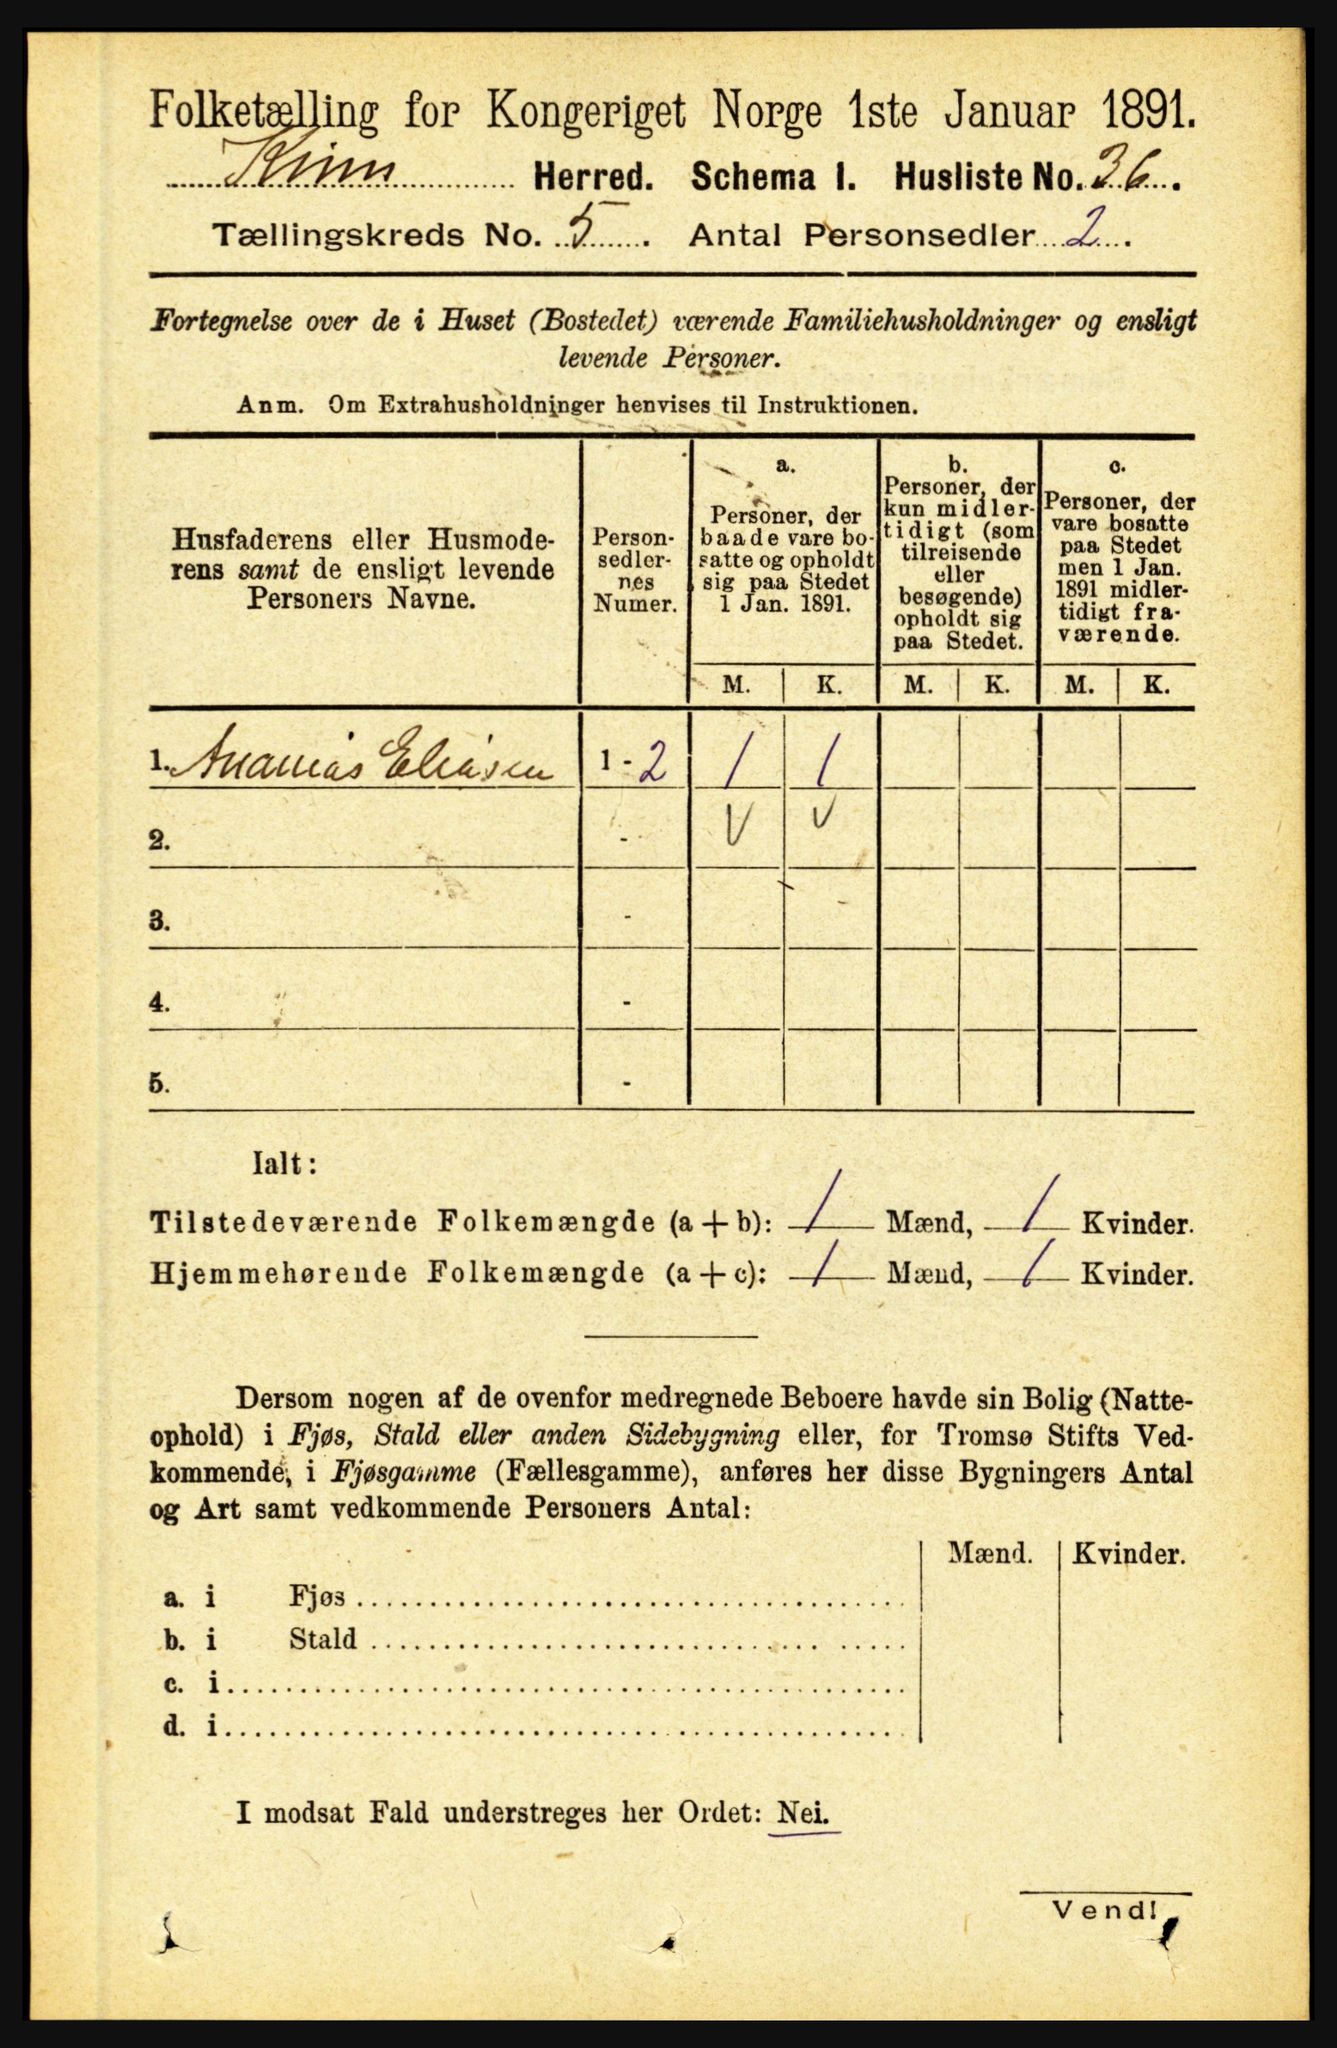 Folketælling for Kongeriget Norge 1ste Januar 1891.
Kinn Herred. Schema I. Husliste No. 36.
Tællingskreds No. 5. Antal Personsedler 2.
Fortegnelse over de i Huset (Bostedet) værende Familiehusholdninger og ensligt
levende Personer.
Anm. Om Extrahusholdninger henvises til Instruktionen.
Husfaderens eller Husmode-
rens samt de ensligt levende
Personers Navne.
Person-
sedler-
nes
Numer.
a.
Personer, der
baade vare bo-
satte og opholdt
sig paa Stedet
1 Jan. 1891.
b.
Personer, der
kun midler-
tidigt (som
tilreisende
eller
besøgende)
opholdt sig
paa Stedet.
c.
Personer, der
vare bosatte
paa Stedet
men 1 Jan.
1891 midler-
tidigt fra-
værende.
M. K. M. K. M. K.
1. Ananias Eliasen 1 - 2 1 1
2. - V V
3. -
4. -
5. -
Ialt:
Tilstedeværende Folkemængde (a + b): 1 Mænd, 1 Kvinder.
Hjemmehørende Folkemængde (a + c): 1 Mænd, 1 Kvinder.
Dersom nogen af de ovenfor medregnede Beboere havde sin Bolig (Natte-
ophold) i Fjøs, Stald eller anden Sidebygning eller, for Tromsø Stifts Ved-
kommende, i Fjøsgamme (Fællesgamme), anføres her disse Bygningers Antal
og Art samt vedkommende Personers Antal:
Mænd. Kvinder.
a. i Fjøs
b. i Stald
c. i
d. i
I modsat Fald understreges her Ordet: Nei.
Vend!